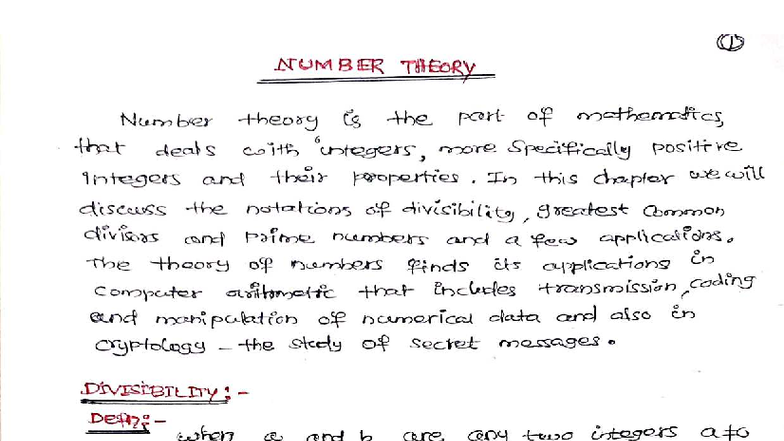 ①
NUMBER THEORY
Number theory is the part of mathematics,
that deals with integers, more specifically positive
integers and their properties. In this chapter we will
discuss the notations of divisibility, greatest common
divisors and prime numbers and a few applications.
The theory of numbers finds its applications in
computer arithmetic that includes transmission, coding
and manipulation of numerical data and also in
cryptology - the study of secret messages.
DIVISIBILITY:-
Defn:-
when a and b are any two integers a≠0